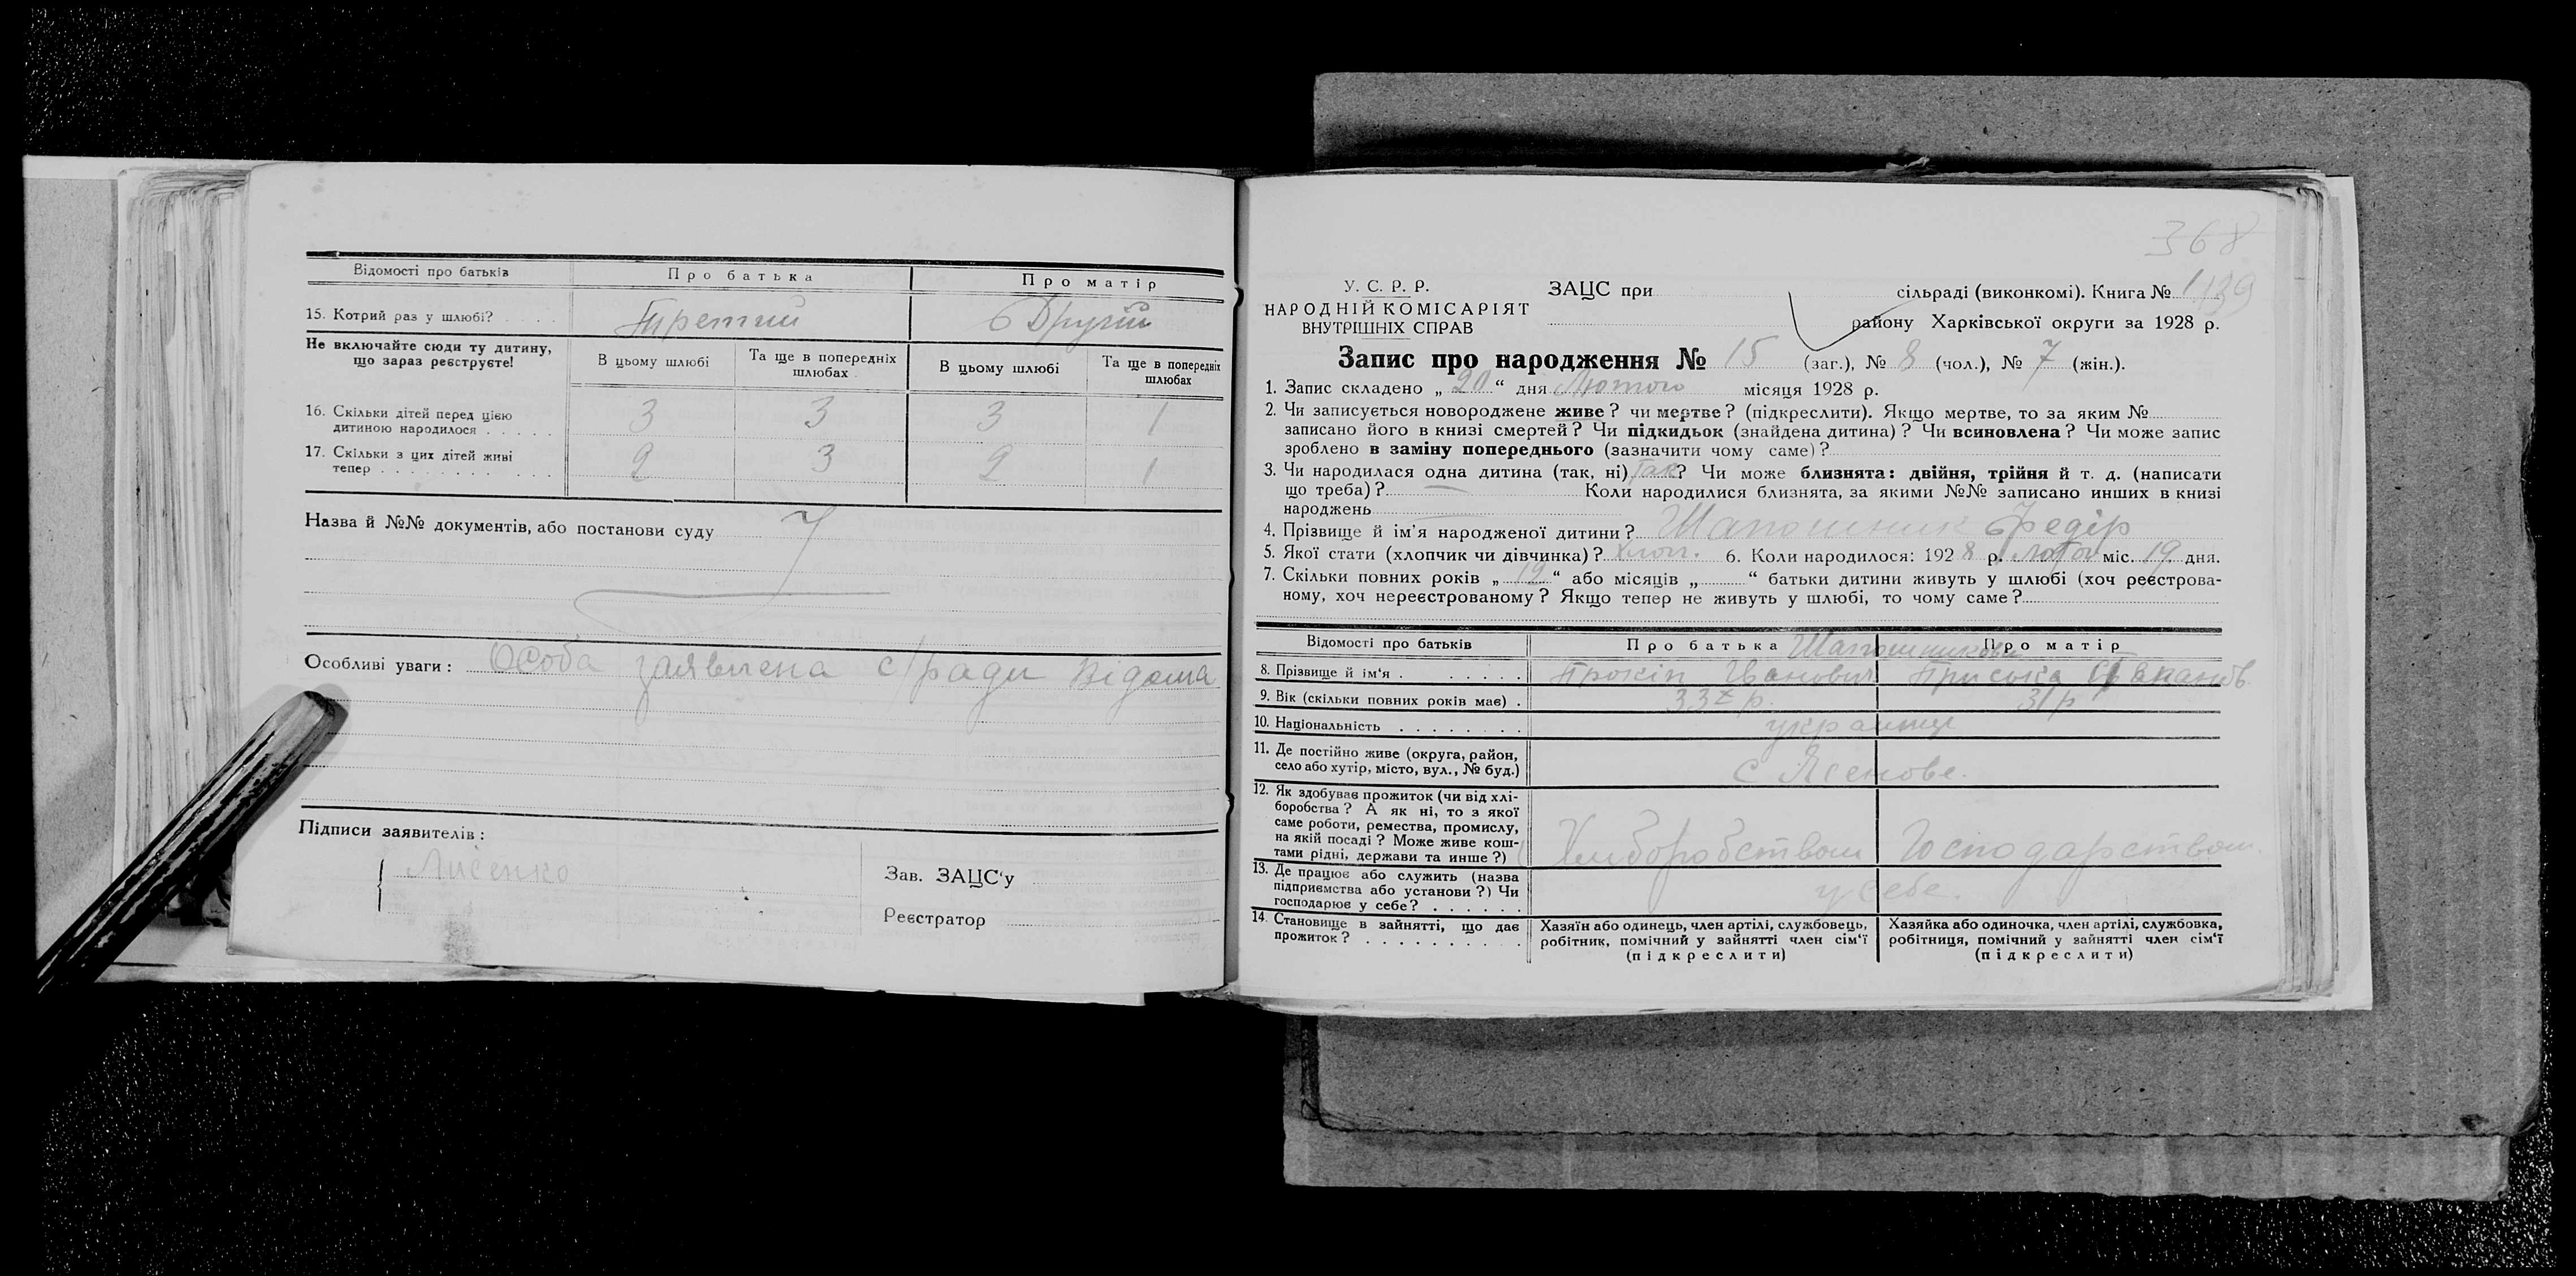 Відомості про батьків
Про батька
Про матір
15. Котрий раз у шлюбі?
Третий
Другий
Не включайте сюди ту дитину,
що зараз реєструєте!
В цьому шлюбі
Та ще в попередніх
шлюбах
В цьому шлюбі
Та ще в попередніх
шлюбах
16. Скільки дітей перед цією
дитиною народилося
3
3
3
1
17. Скільки з цих дітей живі
тепер
2
3
2
1
Назва й №№ документів, або постанови суду
Особливі уваги: Особа заявлена с/ради Відома
Підписи заявителів:
Лисенко
Зав. ЗАЦС'у
Реєстратор
368
У. С. Р. Р.
НАРОДНІЙ КОМІСАРІЯТ
ВНУТРІШНІХ СПРАВ
ЗАЦС при сільраді (виконкомі). Книга №
району Харківської округи за 1928 р.
Запис про народження № 15 (заг.), № 8 (чол.), № 7 (жін.).
1. Запис складено „ 20 “ дня Лютого місяця 1928 р.
2. Чи записується новороджене живе? чи мертве? (підкреслити). Якщо мертве, то за яким №
записано його в книзі смертей? Чи підкидьок (знайдена дитина)? Чи всиновлена? Чи може запис
зроблено в заміну попереднього (зазначити чому саме)?
3. Чи народилася одна дитина (так, ні) так? Чи може близнята: двійня, трійня й т. д. (написати
що треба)? — Коли народилися близнята, за якими №№ записано инших в книзі
народжень
4. Прізвище й ім'я народженої дитини? Шапошник Федір
5. Якої стати (хлопчик чи дівчинка)? хлоп. 6. Коли народилося: 1928 р. лютого міс. 19 дня.
7. Скільки повних років „ 12 “ або місяців „ “ батьки дитини живуть у шлюбі (хоч реєстрова-
ному, хоч нереєстрованому? Якщо тепер не живуть у шлюбі, то чому саме?
Відомості про батьків
Про батька
Про матір
Шапошникови
8. Прізвище й ім'я
Прокіп Іванович
Приська
9. Вік (скільки повних років має)
33 р.
31 р
10. Національність
українці
11. Де постійно живе (округа, район,
село або хутір, місто, вул., № буд.)
с Ясенове.
12. Як здобуває прожиток (чи від хлі-
боробства? А як ні, то з якої
саме роботи, ремества, промислу,
на якій посаді? Може живе кош-
тами рідні, держави та инше?)
Хлиборобством
Господарством
13. Де працює або служить (назва
підприємства або установи?) Чи
господарює у себе?
у себе.
14. Становище в зайнятті, що дає
прожиток?
Хазяїн або одинець, член артілі, службовець,
робітник, помічний у зайнятті член сім'ї
(підкреслити)
Хазяйка або одиночка, член артілі, службовка,
робітниця, помічний у зайнятті член сім'ї
(підкреслити)